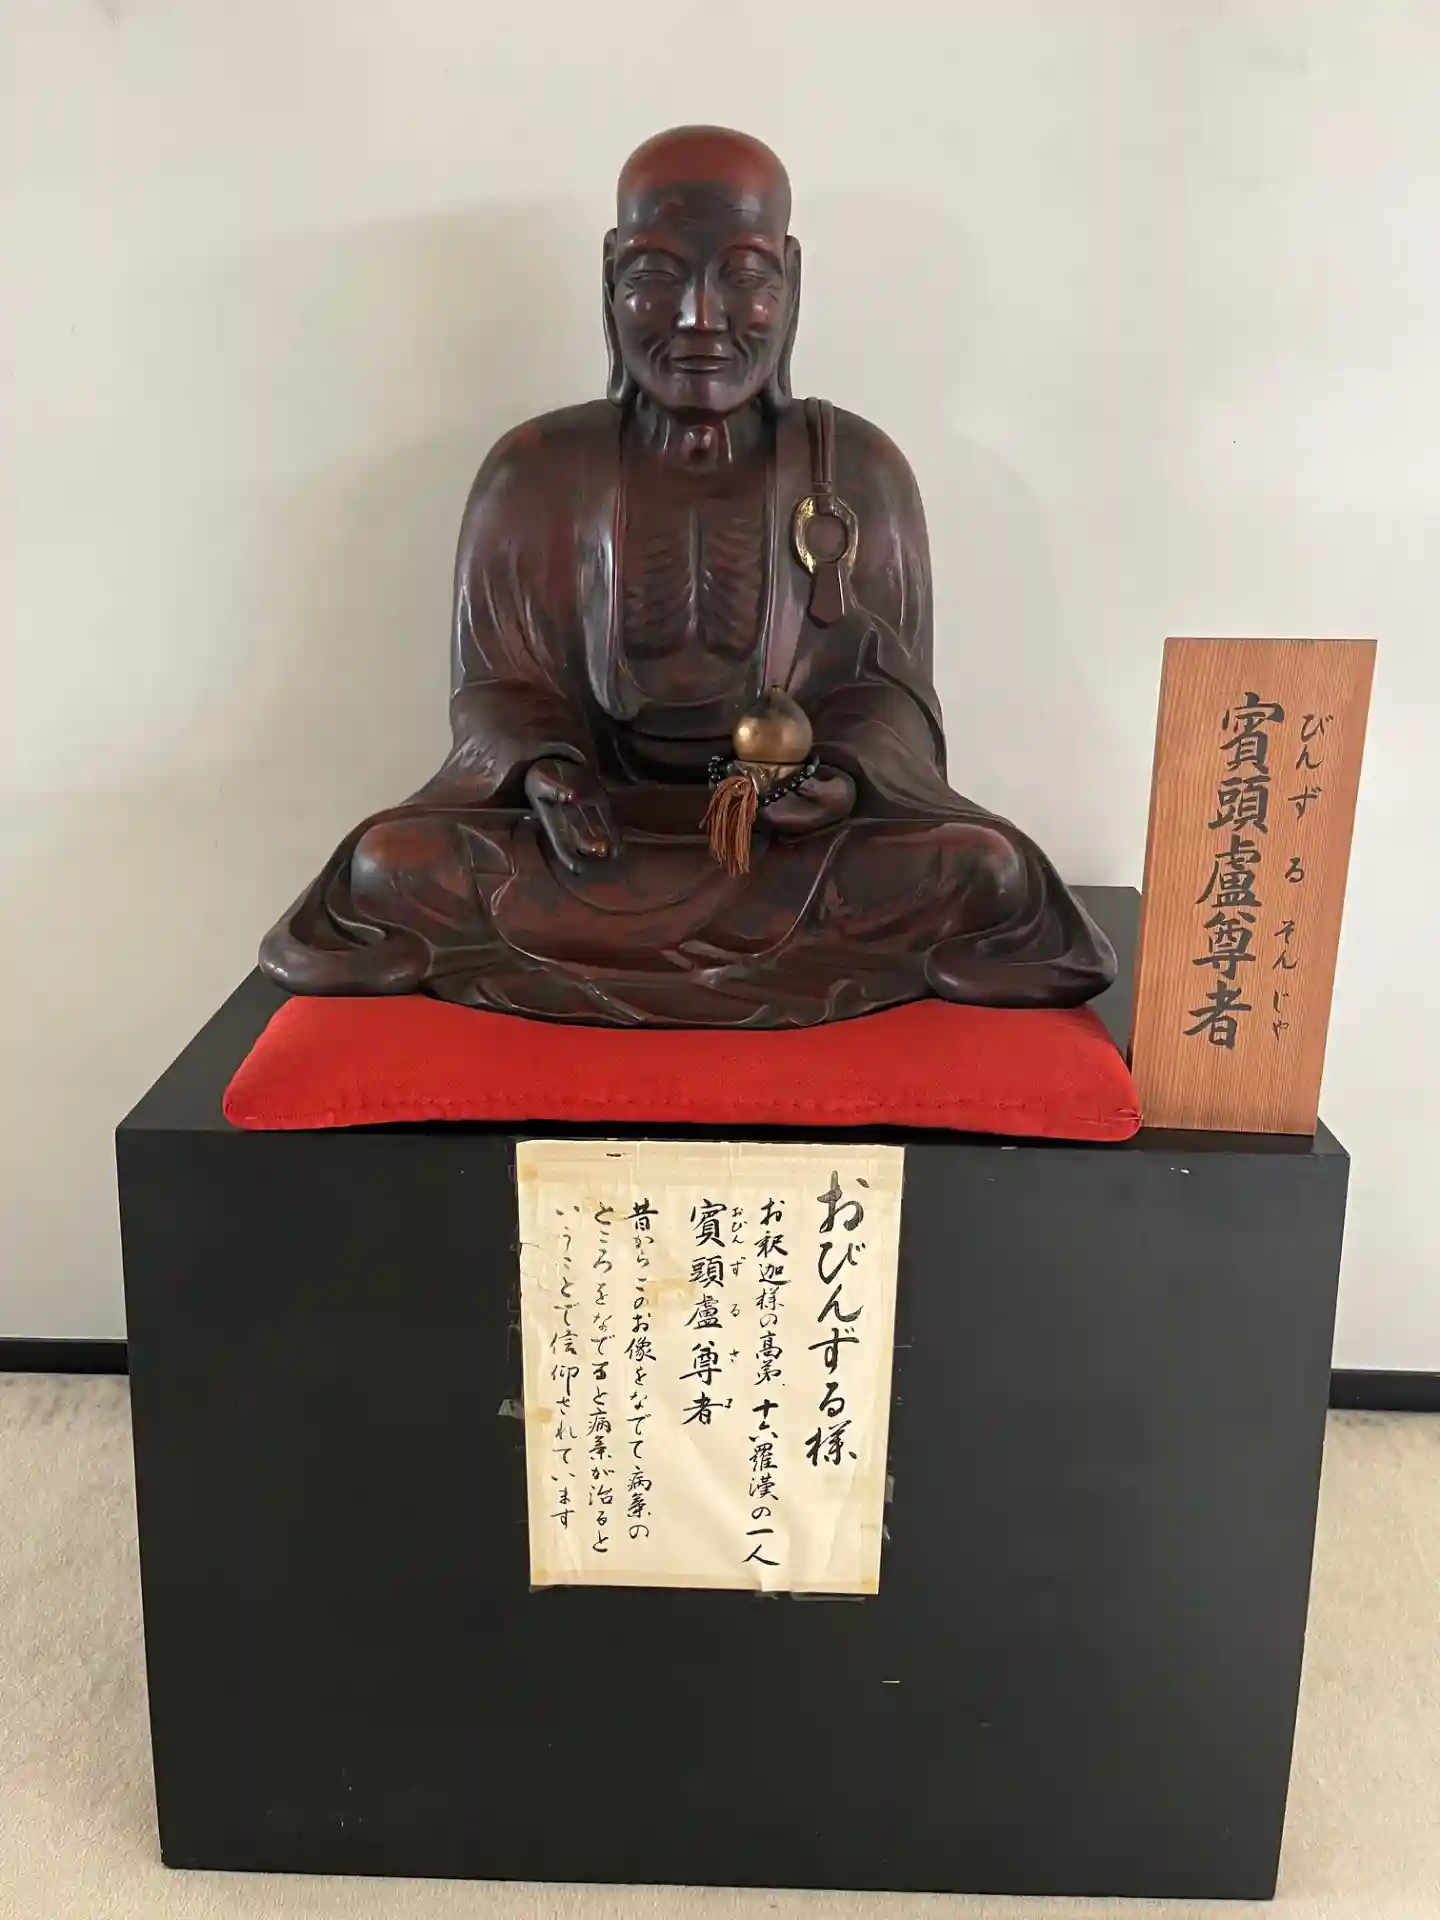 賓頭盧尊者
びんずるそんじゃ
おびんずる様
お釈迦様の高弟、十六羅漢の一人
おびんずるさま
賓頭盧尊者
昔からこのお像をなでて病気の
ところをなでると病気が治ると
いうことで信仰されています